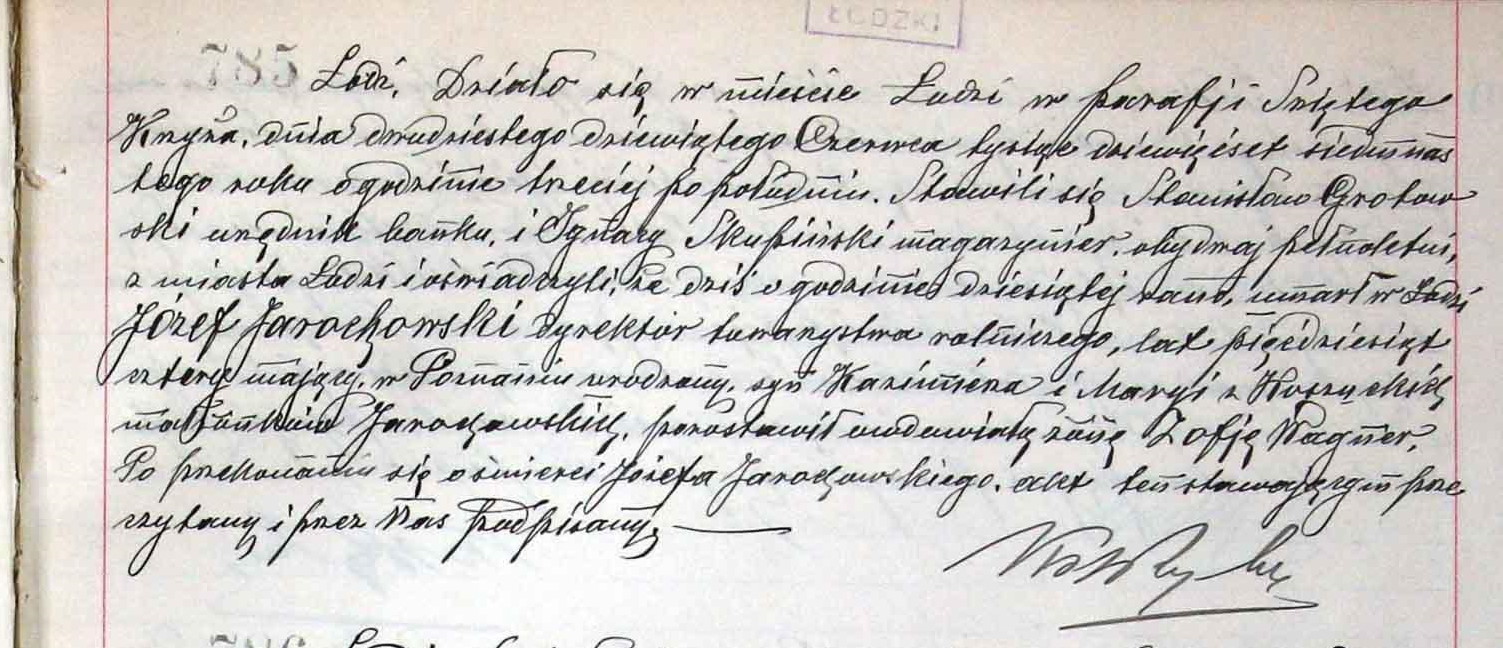 ŁÓDZKI
785 Łódź. Działo się w mieście Łodzi w parafji Świętego
Krzyża, dnia dwudziestego dziewiątego Czerwca tysiąc dziewięćset siedmnas
tego roku o godzinie trzeciej po południu. Stawili się Stanisław Grotow
ski urzędnik banku, i Ignacy Skupiński magazynier, obydwaj pełnoletni,
z miasta Łodzi i oświadczyli, że dziś o godzinie dziesiątej rano, umarł w Łodzi
Józef Jarochowski dyrektor towarzystwa rolniczego, lat pięćdziesiąt
cztery mający, w Poznaniu urodzony, syn Kazimierza i Maryi z
małżonków Jarochowskich, pozostawił owdowiałą żonę Zofję Wagner.
Po przekonaniu się o śmierci Józefa Jarochowskiego, akt ten stawającym prze
czytany i przez Nas podpisany.